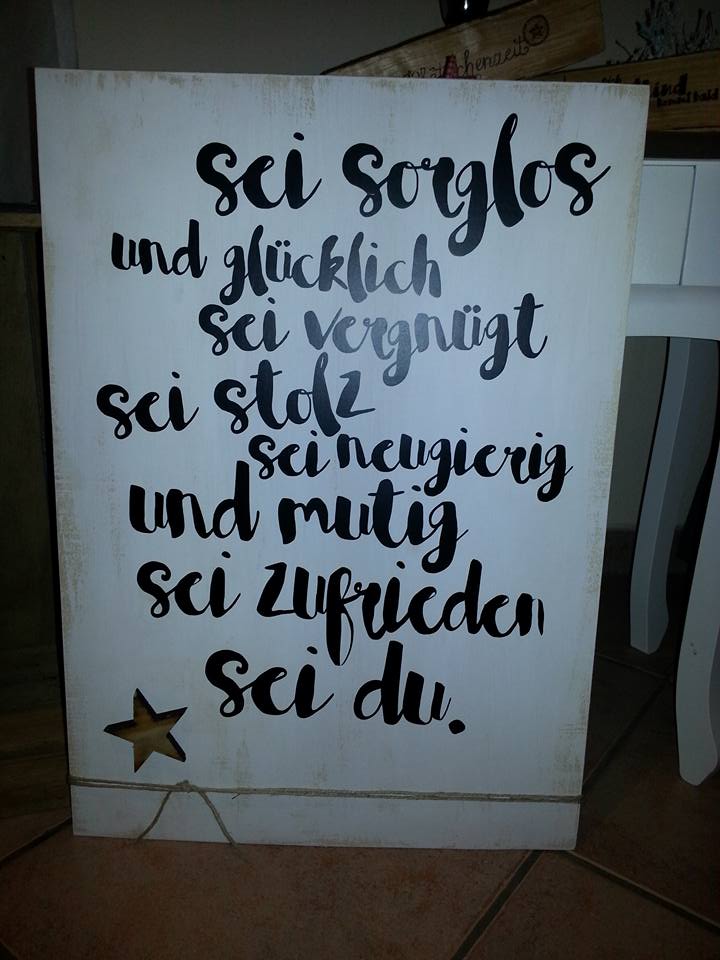 sei sorglos
und glücklich
sei vergnügt
sei stolz
sei neugierig
und mutig
sei zufrieden
sei du.